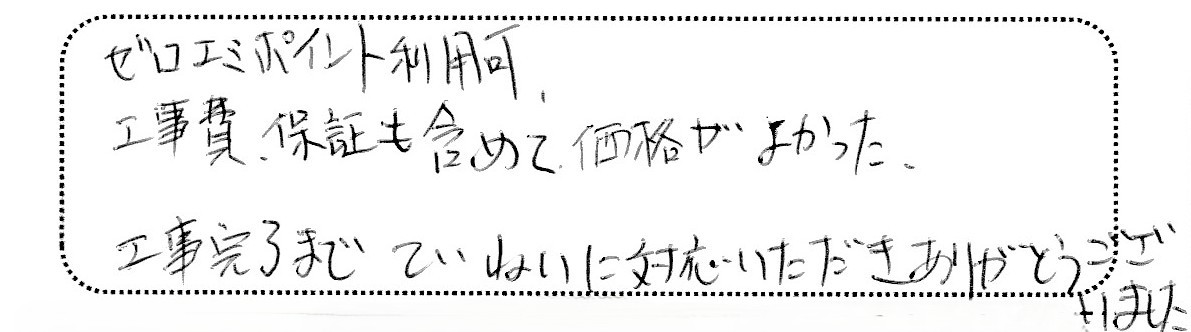 ゼロエミポイント利用可、
工事費、保証も含めて、価格がよかった、
工事完了まで ていねいに対応いただきありがとうござ
いました